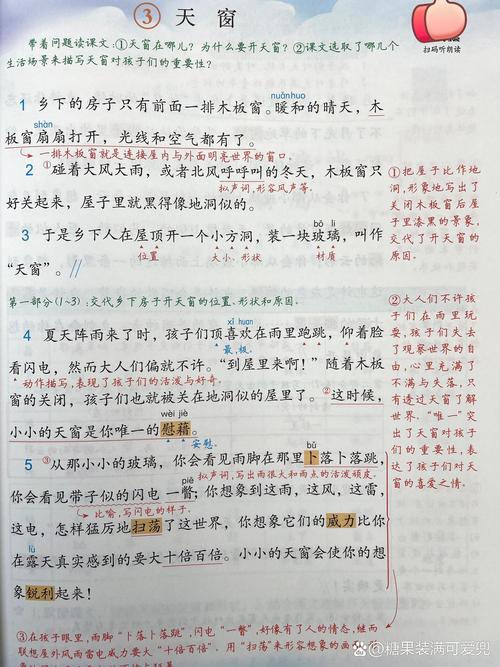 ③ 天窗
扫码听朗读
带着问题读课文:①天窗在哪儿？为什么要开天窗？②课文选取了哪几个
生活场景来描写天窗对孩子们的重要性？
nuǎnhuo
1 乡下的房子只有前面一排木板窗。暖和的晴天，木
shàn
板窗扇扇打开，光线和空气都有了。
一排木板窗就是连接屋内与外面明亮世界的窗口。
2 ①碰着大风大雨，或者北风呼呼叫的冬天，木板窗只
拟声词,形容风声等。
好关起来，屋子里就黑得像地洞似的。
bō li
3 于是乡下人在屋顶开一个小方洞，装一块玻璃，叫作
位置 大小、形状 材质
“天窗”。//
①把屋子比作地
洞,形象地写出了
关闭木板窗后屋
里漆黑的景象，
交代了开天窗的
原因。
第一部分(1~3):交代乡下房子开天窗的位置、形状和原因。
xǐ huan
4 夏天阵雨来了时，孩子们顶喜欢在雨里跑跳，仰着脸
最，极。
看闪电，然而大人们偏就不许。“到屋里来啊！”随着木板
动作描写,表现了孩子们的活泼与好奇。
窗的关闭，孩子们也就被关在地洞似的屋里了。②这时候，
wèi jiè
小小的天窗是你唯一的慰藉。
安慰。
bǔ
5 ③从那小小的玻璃，你会看见雨脚在那里卜落卜落跳，
拟声词,写出雨很大和雨点的活泼顽皮。
你会看见带子似的闪电一瞥；你想象到这雨，这风，这雷，
比喻,写闪电的样子。
这电，怎样猛厉地扫荡了这世界，你想象它们的威力比你
lù
在露天真实感到的要大十倍百倍。小小的天窗会使你的想
象锐利起来！
②大人们不许孩
子们在雨里玩
耍，孩子们失去
了观察世界的自
由，心里充满了
不满与失落，只
有透过天窗了解
世界。“唯一”突
出了天窗对孩子
们的重要性，表
达了孩子们对天
窗的喜爱之情。
③在孩子眼里,雨脚“卜落卜落跳”,闪电“一瞥”,好像有了人的情态,继而
联想屋外风雨雷电威力要大“十倍百倍”。用“扫荡”来形容想象的画
@糖果装满可爱兜